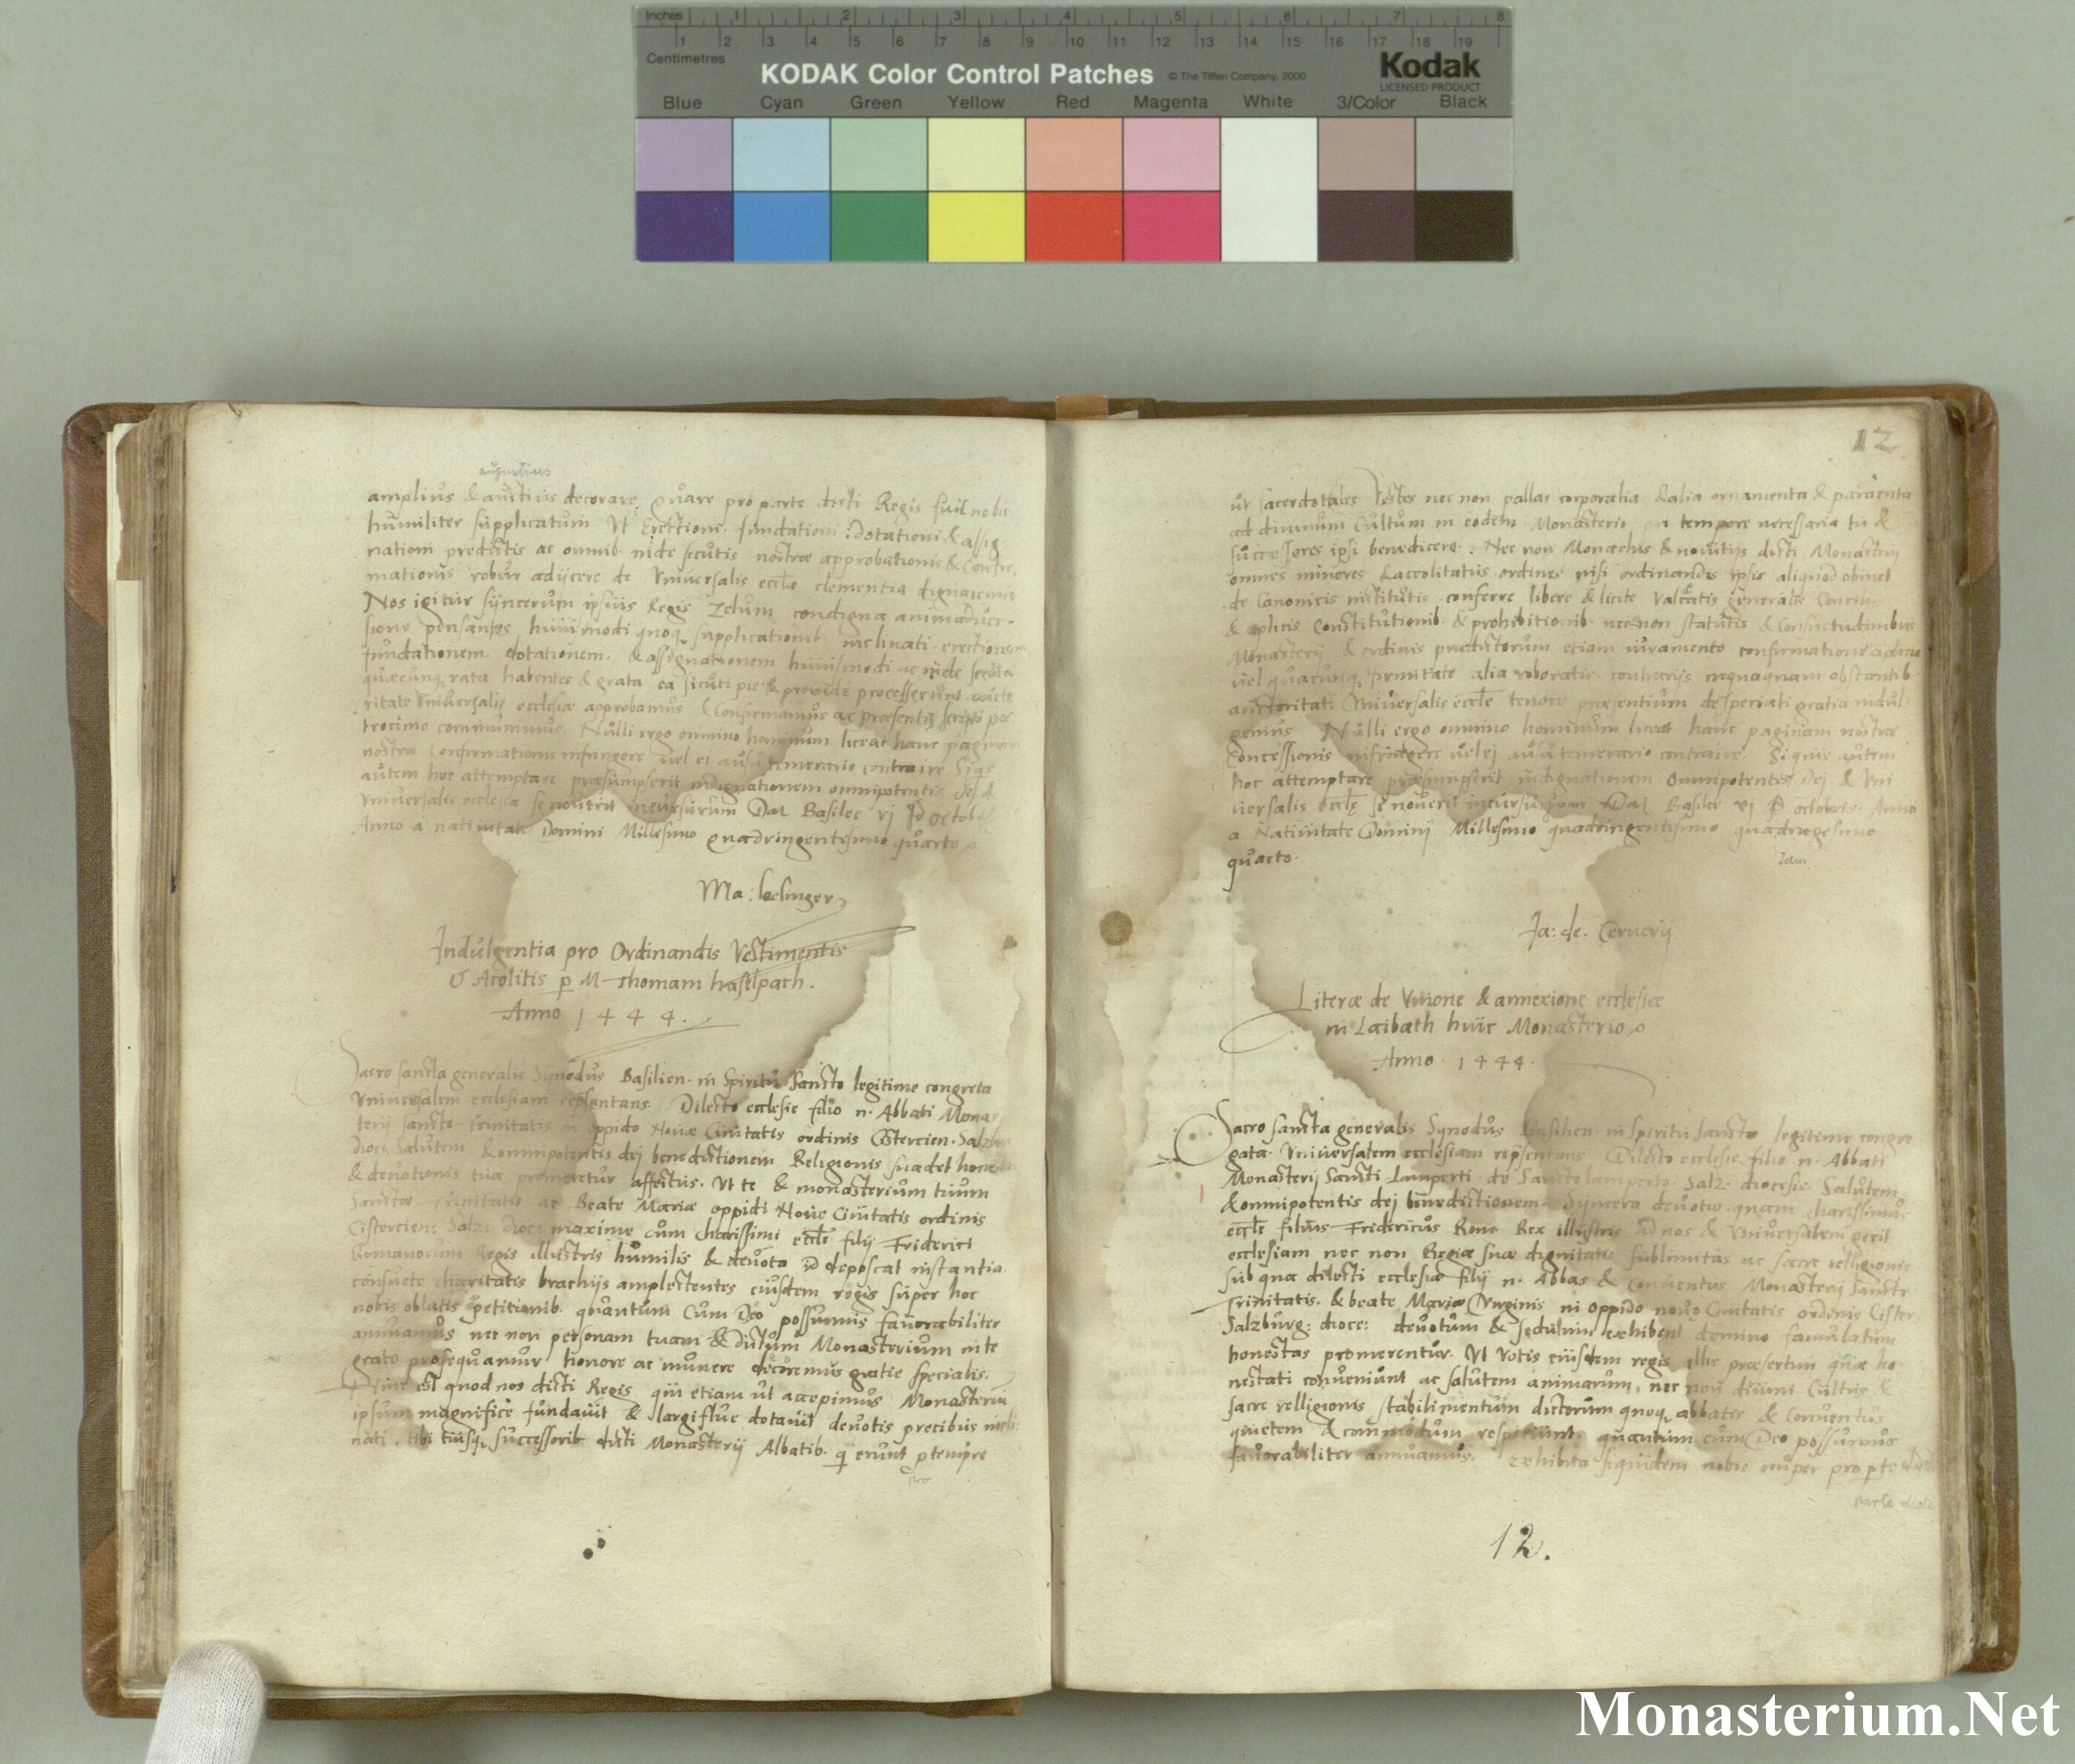 Inches 1 2 3 4 5 6 7 8
1 2 3 4 5 6 7 8 9 10 11 12 13 14 15 16 17 18 19
Centimetres
KODAK Color Control Patches © The Tiffen Company, 2000 Kodak
LICENSED PRODUCT
Blue Cyan Green Yellow Red Magenta White 3/Color Black
amplius & decorare. Quare pro parte dicti Regis fuit nobis
humiliter supplicatum Ut Erectioni fundationi: dotationi & assig
nationi predictis ac omnib. inde secutis nostræ approbationis & Confir
mationis robur adijcere de Vniversalis eccłæ clementia dignaremur
Nos igitur sÿncerum ipsius Regis Zelum condigna animaduer-
sione pensantes, huiusmodi quoq. supplicationib. inclinati erectionem
fundationem. dotationem. & assignationem huiusmodi ac inde secuta
quæcunq. rata habentes & grata ea sicuti pie & provide processerunt aucto
ritate Vniversalis ecclesiæ approbamus & Confirmamus ac præsentis scripti pa
trocinio communimus. Nulli ergo omnino hominum liceat hanc paginam
nostræ Confirmationis infringere vel ei ausu temerario contraire Siqs
autem hoc attemptare præsumpserit indignationem omnipotentis Dej &
Vniversalis ecclesiæ se noverit incursurum Dat Basilee vj Id octob
Anno a nativitate Domini Millesimo quadringentesimo quarto
Indulgentia pro Ordinandis Vestimentis
& Acolitis p M Thomam haselpach.
Anno 1444.
Sacro sancta generalis Synodus Basilien. in Spiritu Sancto legitime congreta
Vniversalem ecclesiam repsentans. Dilecto ecclesie filio n. Abbati Monas
terij sancte Trinitatis in oppido Novæ Civitatis ordinis Cistercien. Salzbur
dioc. Salutem & omnipotentis dej benedictionem Religionis suadet hones
& devotionis tuæ promeretur affectus. Ut te & monasterium tuum
Sanctæ Trinitatis ac Beate Mariæ oppidi Nove Civitatis ordinis
Cistercien: Salz: dioc: maxime cum charissimi eccłe filij Friderici
Romanorum Regis illustris humilis & devota id deposcat instantia
consuete charitatis brachijs amplectentes eiusdem regis super hoc
nobis oblatis petitionib. quantum Cum Deo possumus favorabiliter
annuamus nec non personam tuam & dictum Monasterium in te
grato prosequamur honore ac munere decoremus gratie specialis.
Hinc est quod nos dicti Regis qui etiam ut accepimus Monasterium
ipsum magnifice fundavit & largiflue dotavit devotis precibus incli
nati. tibi tuisq. successorib. dicti Monasterij Abbatib. q erunt p tempre
12
ut sacerdotales Vestes nec non pallas corporalia & alia ornamenta & paramta
ad divinum Cultum in eodem Monasterio pro tempore necessaria tu &
successores ipsi benedicere. Nec non Monachis & novitijs dicti Monasterij
omnes minores & accolitatus ordines nisi ordinandis ipsis aliquod obviet
de Canonicis institutis conferre libere & licite valeatis generalis Concilij
& aplicis Constitutionib. & prohibitionib. nec non statutis & Consuetudinibus
Monasterij & ordinis prædictorum etiam iuramento confirmatione aplica
vel quacunq. firmitate alia roboratis contrarijs nequaquam obstantib.
auctoritate Vniversalis eccłe tenore præsentium de speciali gratia indul-
gemus Nulli ergo omnino hominum liceat hanc paginam nostræ
concessionis infringere vel ej ausu temerario contraire. Siquis autem
hoc attemptare præsumpserit indignationem Omnipotentis Dej & Vni
versalis se noverit incursurum Dat Basilee Anno
a Nativitate Dominj Millesimo quadringentesimo quadragesimo
quarto.
Literæ de Vnione & annexione ecclesiæ
in Laibach huic Monasterio
Anno. 1444.
Sacro sancta generalis Synodus Basilien. in spiritu sancto legitime congre
gata. Vniversalem ecclesiam repsentans Dilecto ecclesie filio n. Abbati
Monasterij Sancti Lamperti de Sancto lamperto Salz. diocesis. Salutem
& omnipotentis dej benedictionem. Syncera devotio quam charissimus
eccłe filius Fridericus Rome Rex illustris ad nos & Vniversalem gerit
ecclesiam nec non Regiæ suæ dignitatis sublimitas ac sacre relligionis
sub qua dilecti ecclesiæ filij n. Abbas & Conventus Monasterij Sancte
Trinitatis. & beate Mariæ Virginis in oppido novæ Civitatis ordinis Cister
Salzburg: dioce: devotum & sedulum exhibent domino famulatum
honestas promerentur. Ut votis eiusdem regis illis præsertim quæ ho-
nestati conveniunt ac salutem animarum, nec non divini Cultus &
sacre relligionis stabilimentum dictorum quoq. abbatis & Conventus
quietem & commodum respiciunt quantum cum Deo possumus
favorabiliter annuamus. Exhibita siquidem nobis nuper pro pte
12.
Monasterium.Net